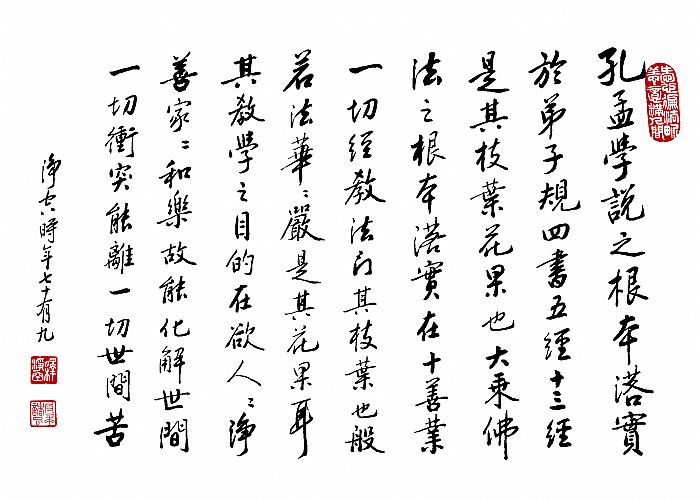 孔孟學說之根本落實
於弟子規四書五經十三經
是其枝葉花果也大乘佛
法之根本落實在十善業
一切經教法門其枝葉也般
若法華〻嚴是其花果耳
其教學之目的在欲人〻淨
善家〻和樂故能化解世間
一切衝突能離一切世間苦
淨空時年七十有九